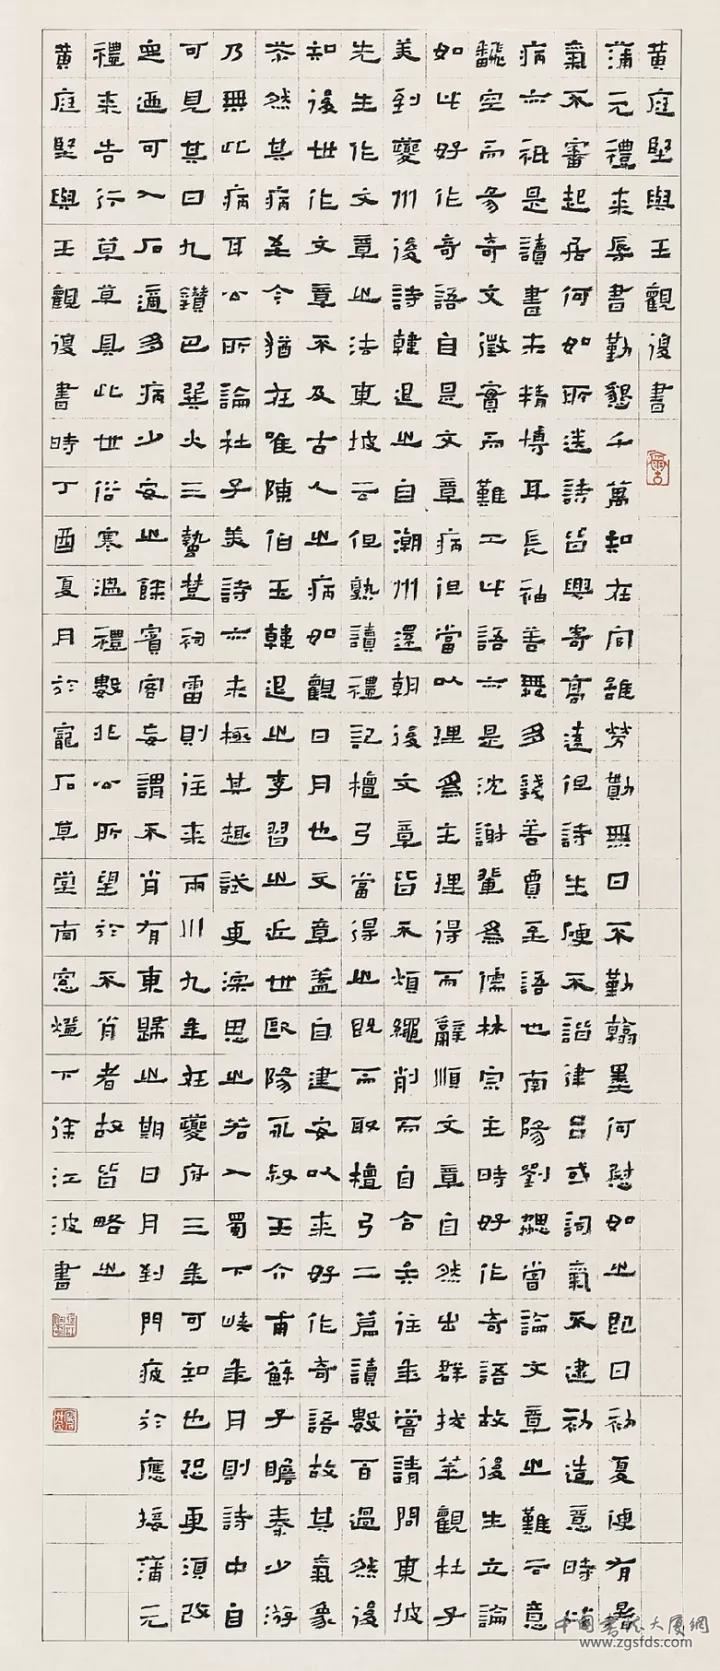 黄庭堅與王觀復書
蒲元禮來辱書勤懇千萬知在同雖勞勩無日不勤翰墨何慰如之即日初夏便有暑
氣不審起居何如所送詩皆興寄高遠但詩生硬不諧律吕或詞氣不逮初造意時此
病亦衹是讀書未精博耳長袖善舞多錢善賈至語也南陽劉勰嘗論文章之難云意
翻空而易奇文徵實而難工此語亦是沈謝輩爲儒林宗主時好作奇語故後生立論
如此好作奇語自是文章病但當以理爲主理得而辭順文章自然出群拔萃觀杜子
美到夔州後詩韓退之自潮州還朝後文章皆不煩繩削而自合矣往年嘗請問東坡
先生作文章之法東坡云但熟讀禮記檀弓當得之既而取檀弓二篇讀數百過然後
知後世作文章不及古人之病如觀日月也文章蓋自建安以來好作奇語故其氣象
苶然其病至今猶在唯陳伯玉韓退之李習之近世歐陽永叔王介甫蘇子瞻秦少游
乃無此病耳公所論杜子美詩亦未極其趣試更深思之若入蜀下峽年月則詩中自
可見其曰九鑽巴巽火三蟄楚祠雷則往來兩川九年在夔府三年可知也恐更須改
定迺可入石適多病少安之餘賓客妄謂不肖有東歸之期日月到門疲於應接蒲元
禮來告行草草具此世俗寒溫禮數非公所望於不肖者故皆略之
黄庭堅與王觀復書時丁酉夏月於寵石草堂南窓燈下徐江波書
中国书法大厦網
www.zgsfds.com